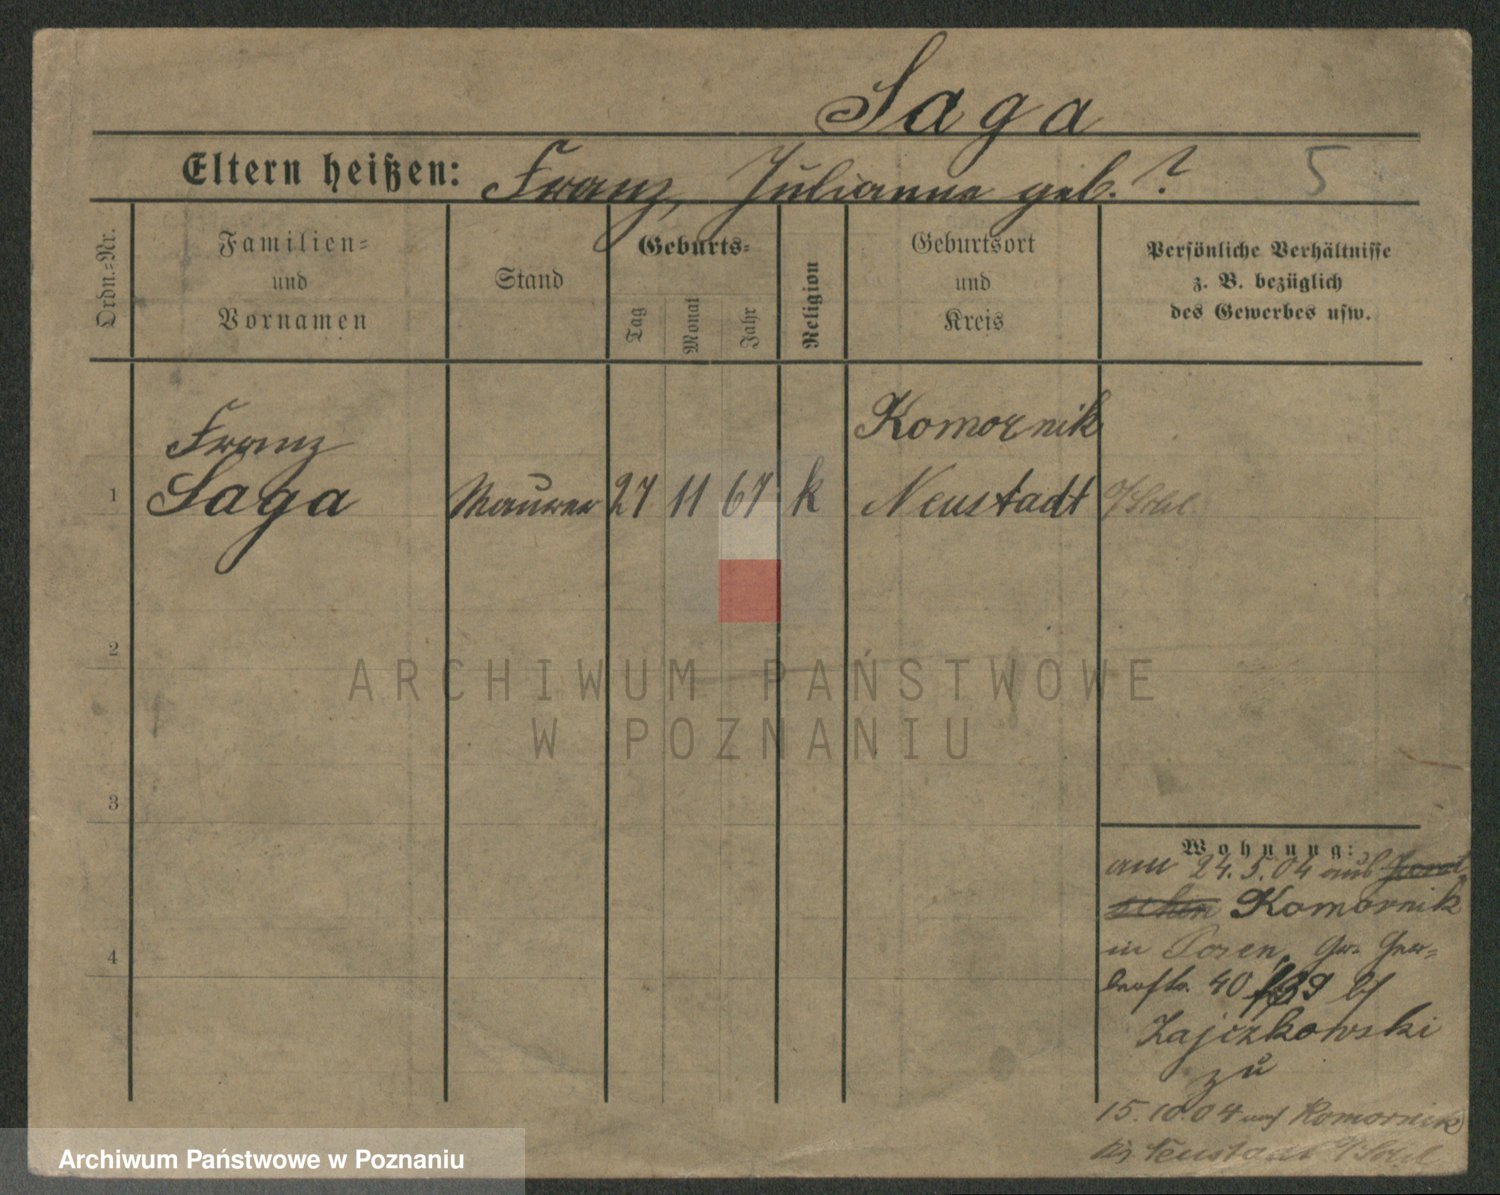 Saga
Eltern heißen: Franz, Julianne geb. ? 5
Ordn.=Nr.
Familien=
und
Vornamen
Stand
Geburts=
Tag
Monat
Jahr
Religion
Geburtsort
und
Kreis
Persönliche Verhältnisse
z. B. bezüglich
des Gewerbes usw.
Franz Komornik
1 Saga Maurer 27 11 67 k Neustadt O/Schl.
2
ARCHIWUM PAŃSTWOWE
W POZNANIU
3
Wohnung:
am 24.5.04 aus
Komornik
in Posen, Gr. Ger=
berstr. 40 bei
Zajczkowski
zu
15.10.04 auf Komornik
Kr. Neustadt O/Schl.
4
Archiwum Państwowe w Poznaniu